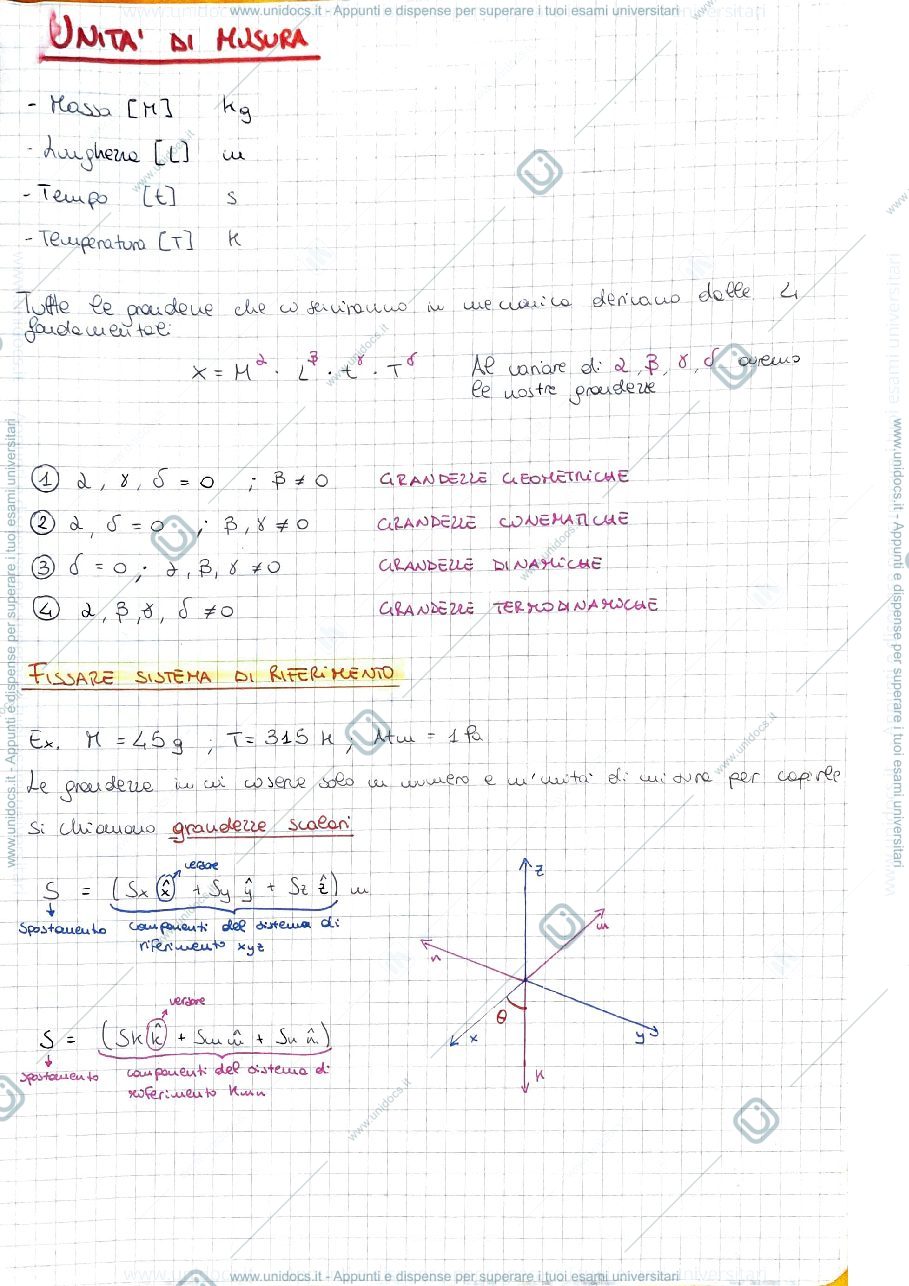 www.unidocs.it - Appunti e dispense per superare i tuoi esami universitari
UNITA' DI MISURA
- Massa [M] kg
- Lunghezza [L] m
- Tempo [t] s
- Temperatura [T] K
Tutte le grandezze che ci serviranno in meccanica derivano dalle 4
fondamentali
X = M^α · L^β · t^γ · T^δ Al variare di α, β, γ, δ avremo
le nostre grandezze
① α, γ, δ = 0 ; β ≠ 0 GRANDEZZE GEOMETRICHE
② α, δ = 0 ; β, γ ≠ 0 GRANDEZZE CINEMATICHE
③ δ = 0 ; α, β, γ ≠ 0 GRANDEZZE DINAMICHE
④ α, β, γ, δ ≠ 0 GRANDEZZE TERMODINAMICHE
FISSARE SISTEMA DI RIFERIMENTO
Ex. M = 45 g ; T = 315 K ; Atm = 1 Pa
Le grandezze in cui ci serve solo un numero e un'unità di misura per capirle
si chiamano grandezze scalari
versore
S = (Sx x̂ + Sy ŷ + Sz ẑ) m
Spostamento componenti del sistema di
riferimento xyz
versore
S = (Sk k̂ + Sm m̂ + Sn n̂)
spostamento componenti del sistema di
riferimento kmn
z
m
n
θ
x
y
K
www.unidocs.it - Appunti e dispense per superare i tuoi esami universitari